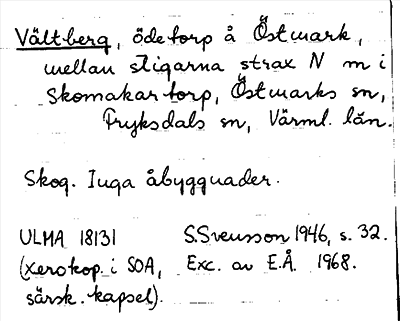 Vältberg, ödetorp å Östmark,
mellan stigarna strax N om i
Skomakartorp, Östmarks sn,
Fryksdals sn, Värml. län.
Skog. Inga åbyggnader.
ULMA 18131 S.Svensson 1946, s. 32.
(xerokop. i SOA, Exc. av E.Å. 1968.
särsk. kapsel).